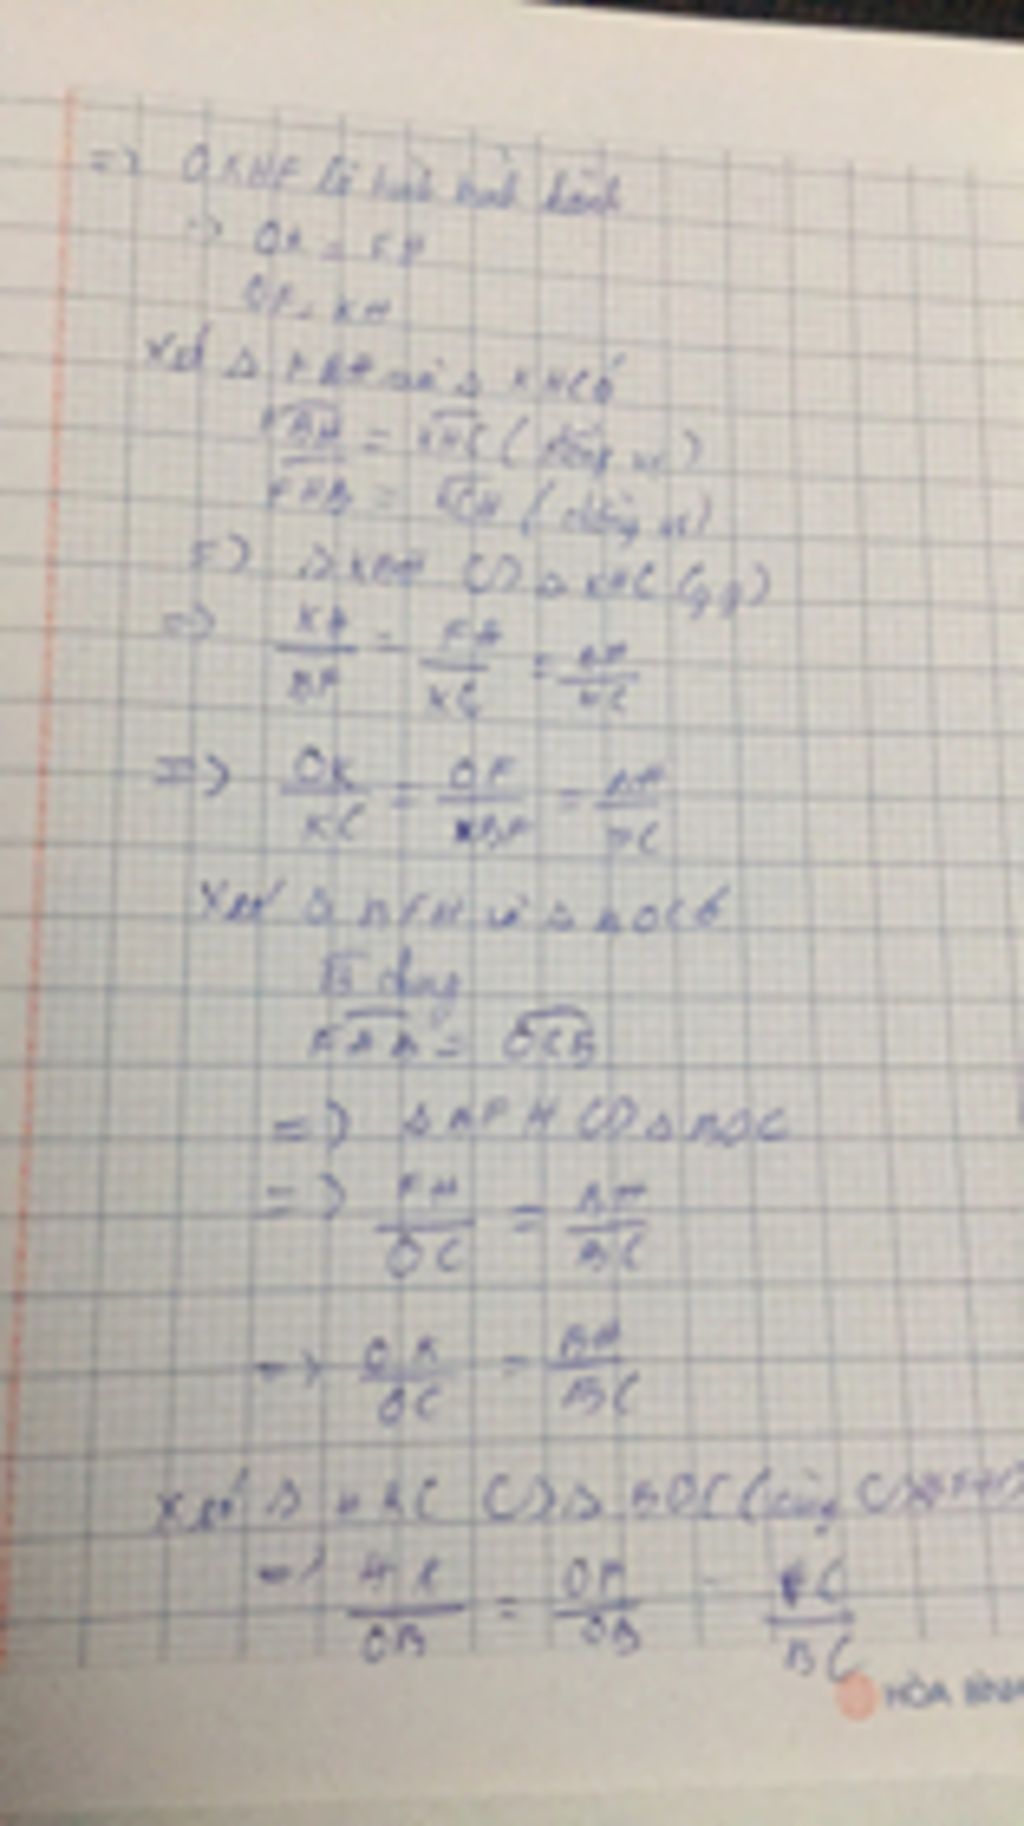 => OKHF là hình bình hành
=> OK = FH
OF = KH
Xét Δ FBH và Δ KHC có
= KHC (đồng vị)
FHB = KCH (đồng vị)
=> Δ ∽ Δ KHC (g.g)
=> KH/BF = FH/KC = BH/HC
=> OK/KC = OF/BF = BH/HC
Xét Δ BFH và Δ BOC có
B chung
FHB = OCB
=> Δ BFH ∽ Δ BOC
=> FH/OC = BH/BC
=> OK/OC = BH/BC
Xét Δ HKC ∽ Δ BOC (cùng ∽
=> HK/OB = OF/OB = HC/BC
HÒA BÌNH